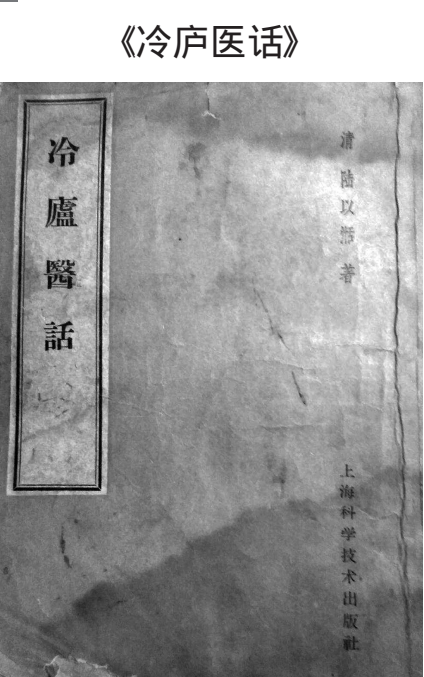 《冷庐医话》
冷廬醫話
清 陆以湉 著
上海科学技术出版社